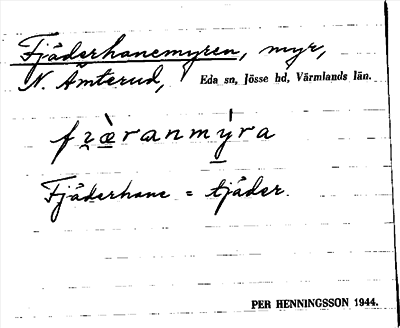 Fjäderhanemyren, myr,
N. Ämterud, Eda sn, Jösse hd, Värmlands län.
fʒæ̀ranmýra
Fjäderhane = tjäder.
PER HENNINGSSON 1944.